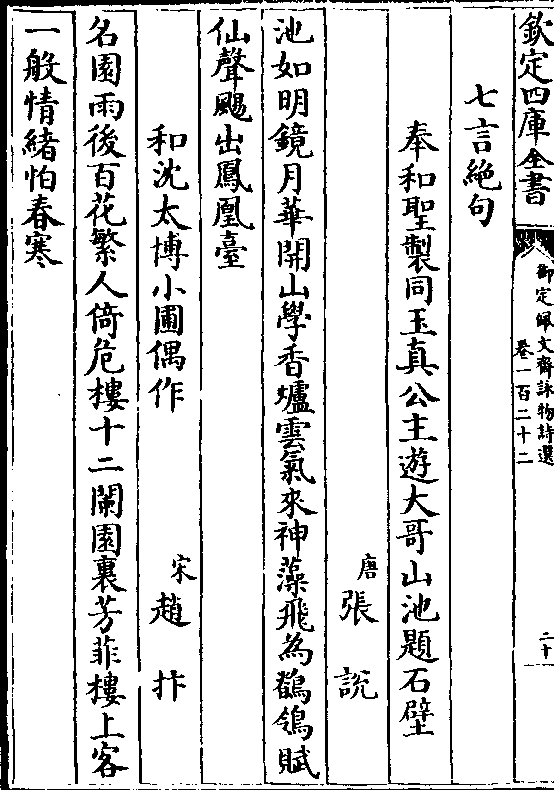 欽定四庫全書
御定佩文齋詠物詩選
卷一百二十二
二十
七言絶句
奉和聖製同玉真公主遊大哥山池題石壁
唐張説
池如明鏡月華開山學香爐雲氣來神藻飛為鶺鴒賦
仙聲颺出鳳凰臺
和沈太博小圃偶作
宋趙抃
名園雨後百花繁人倚危樓十二闌園裏芳菲樓上客
一般情緒怕春寒